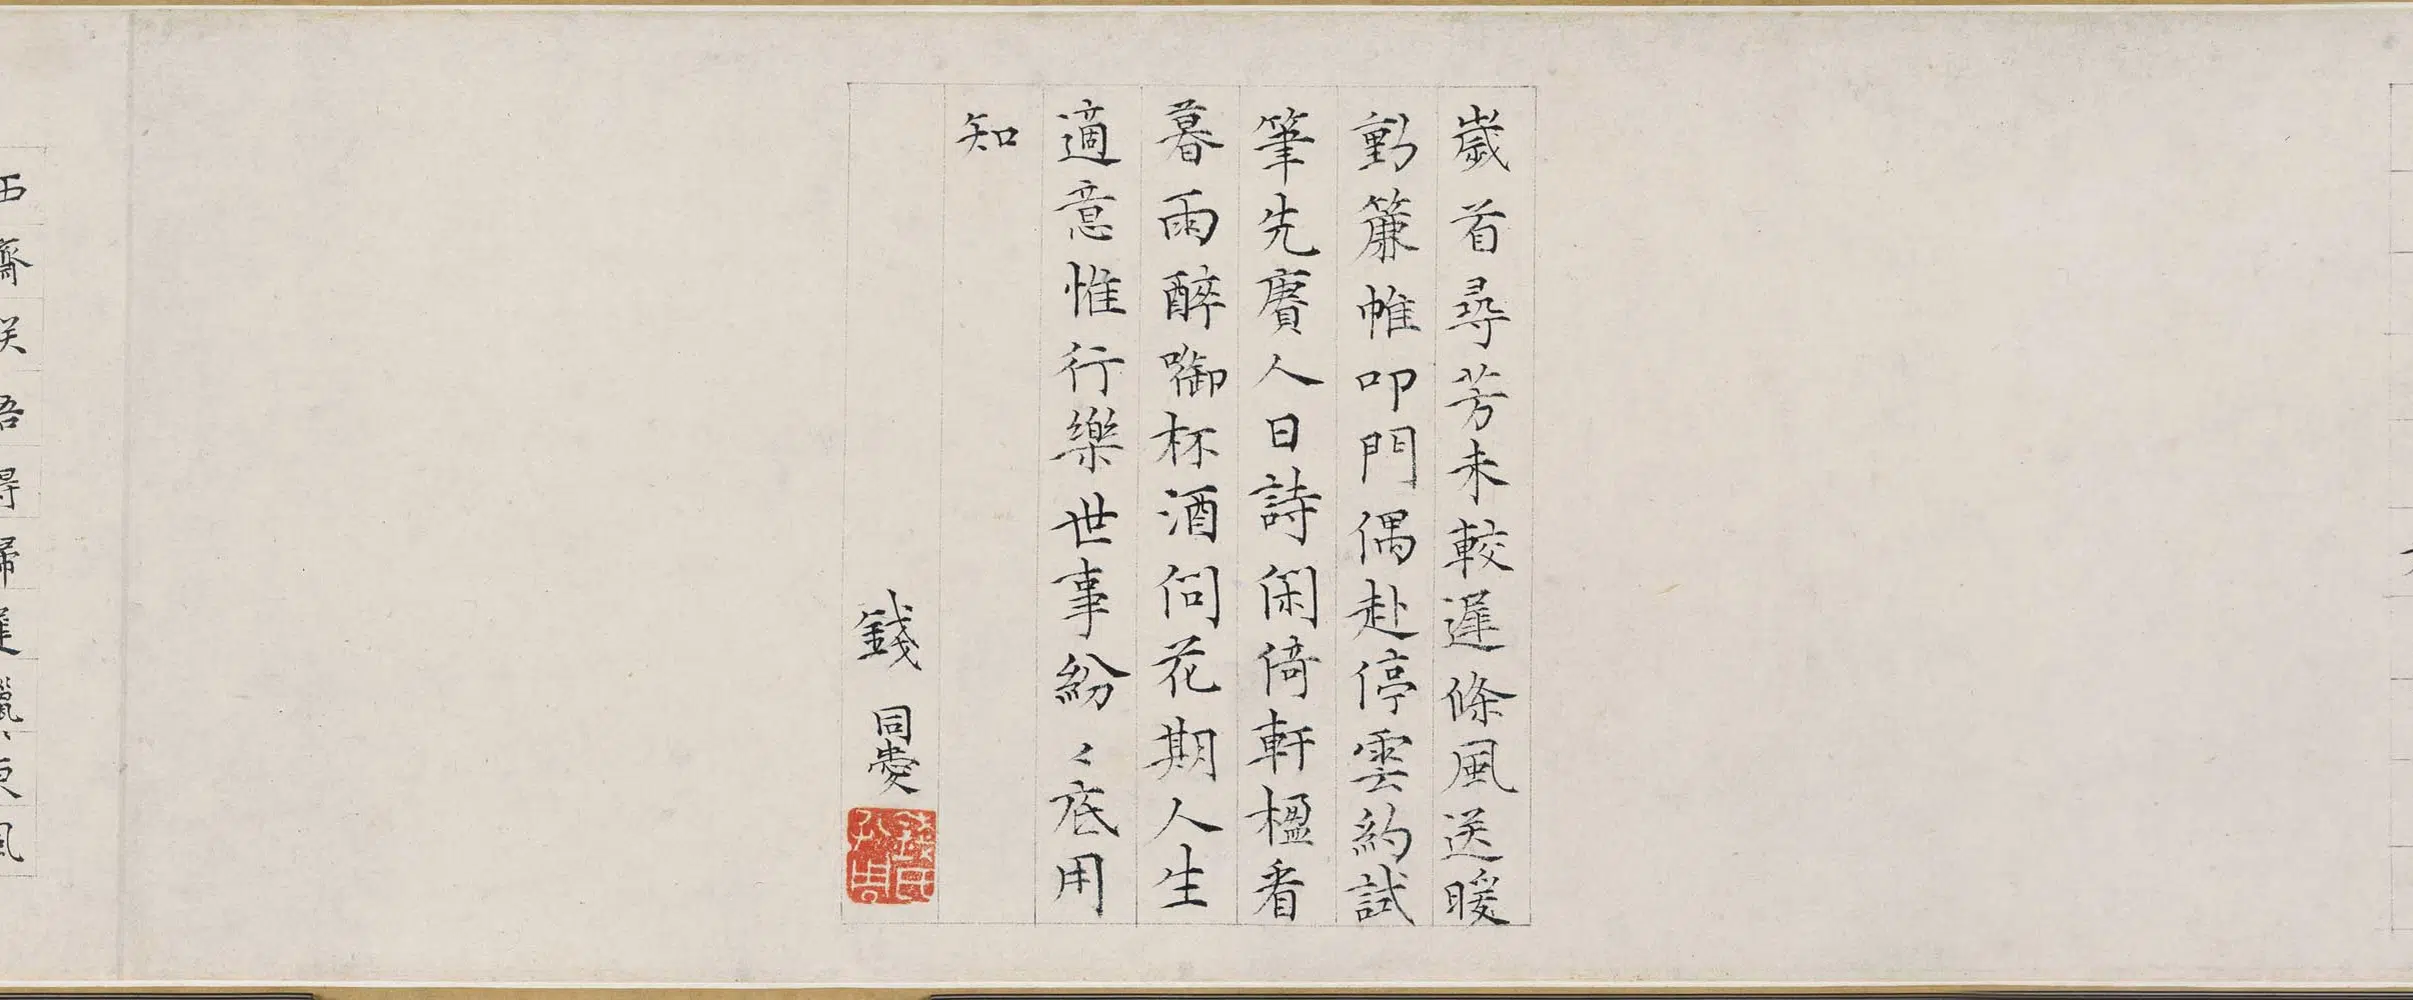 歲首尋芳未較遲條風送暖
動簾帷叩門偶赴停雲約試
筆先賡人日詩閑倚軒楹看
暮雨醉啣杯酒問花期人生
適意惟行樂世事紛〻底用
知
錢同愛
西齋笑語得歸遲臘〻東風